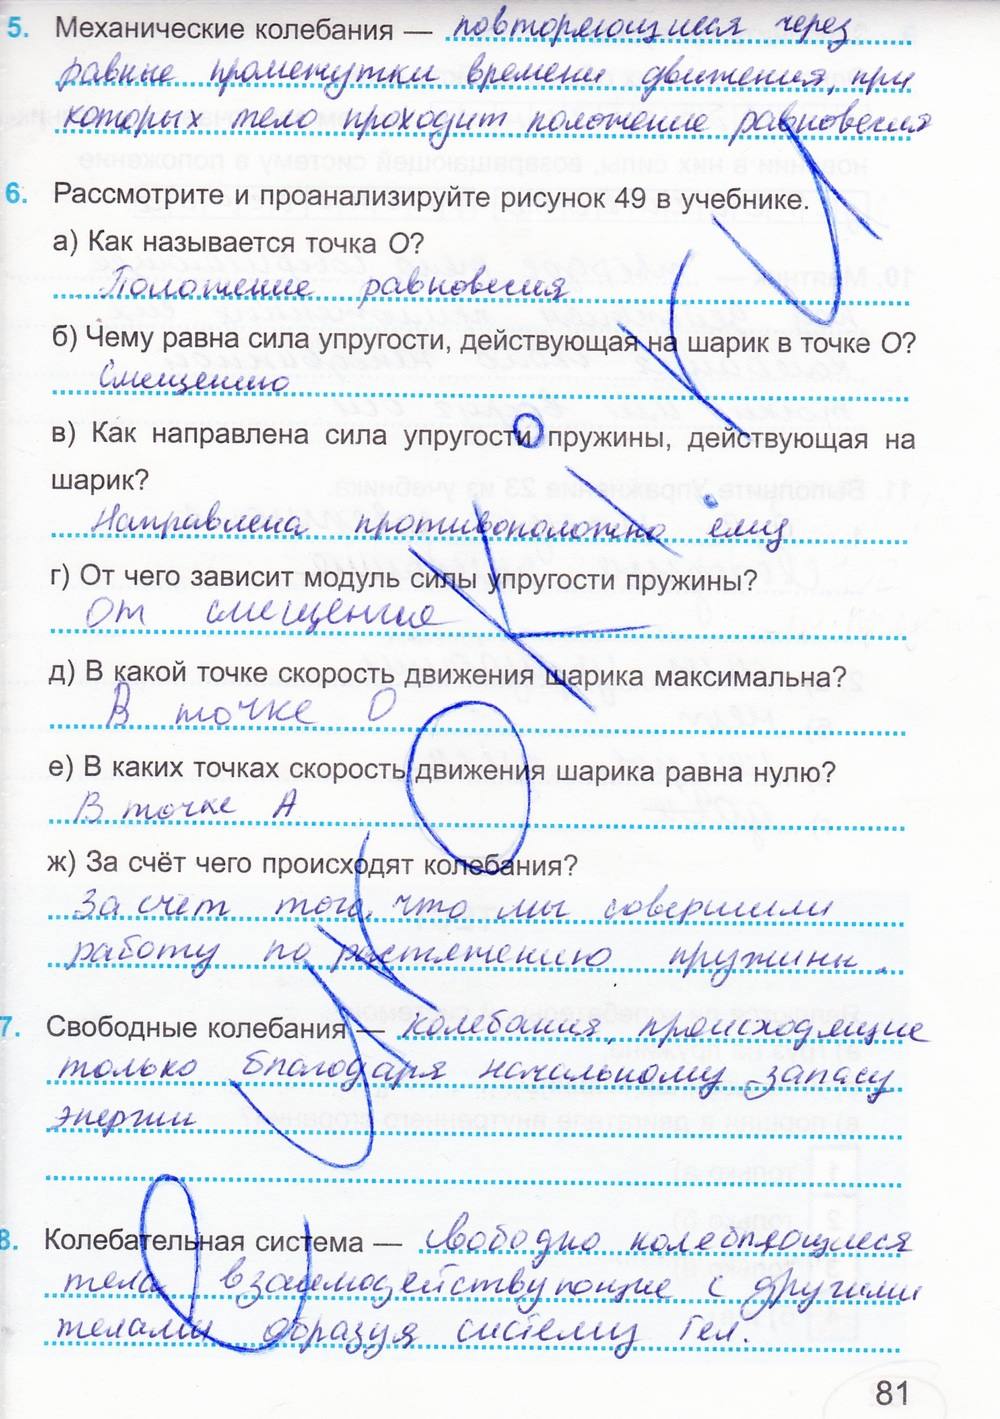 5. Механические колебания — повторяющиеся через
равные промежутки времени движения, при
которых тело проходит положение равновесия
6. Рассмотрите и проанализируйте рисунок 49 в учебнике.
а) Как называется точка О?
Положение равновесия
б) Чему равна сила упругости, действующая на шарик в точке О?
Смещению
в) Как направлена сила упругости пружины, действующая на
шарик?
Направлена противоположно ему
г) От чего зависит модуль силы упругости пружины?
От смещения
д) В какой точке скорость движения шарика максимальна?
В точке О
е) В каких точках скорость движения шарика равна нулю?
В точке А
ж) За счёт чего происходят колебания?
За счет того, что мы совершили
работу по растяжению пружины.
7. Свободные колебания — колебания, происходящие
только благодаря начальному запасу
энергии
8. Колебательная система — свободно колеблющиеся
тела взаимодействующие с другими
телами образуя систему тел.
81